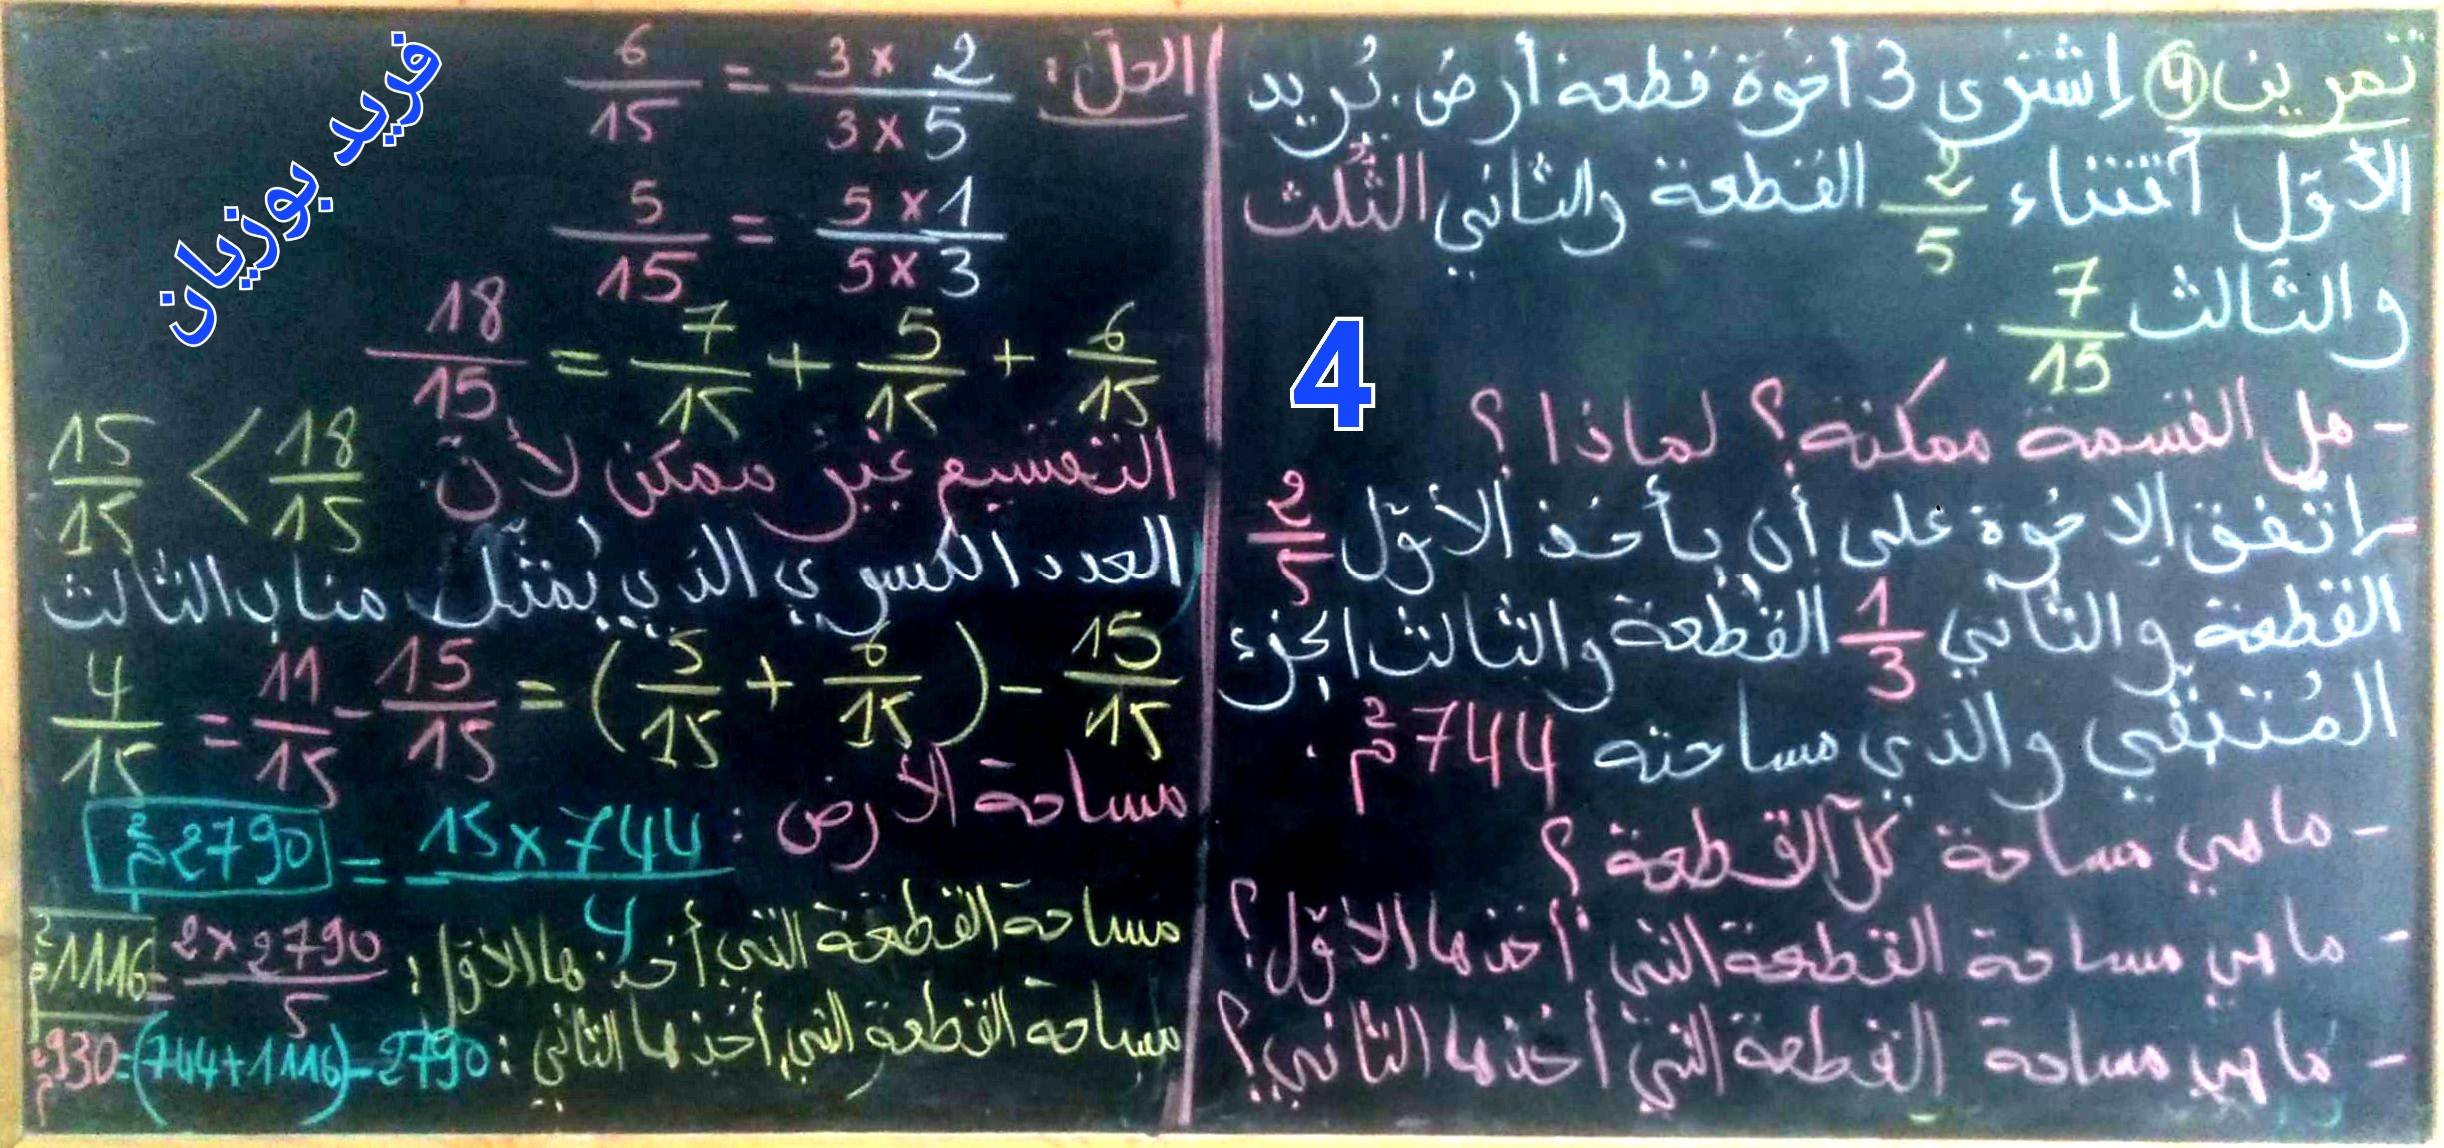 تمرين ④ اِشترى 3 اخوة قطعة أرض. يُريد
الأوّل اقتناء 2/5 القطعة والثاني الثُلث
والثالث 7/15 .
- هل القسمة ممكنة؟ لماذا؟
- اتّفق الإخوة على أن يأخذ الأوّل 2/5
القطعة والثاني 1/3 القطعة والثالث الجزء
المُتبقّي والذي مساحته 744م² .
- ما هي مساحة كلّ القطعة؟
- ما هي مساحة القطعة التي أخذها الأوّل؟
- ما هي مساحة القطعة التي أخذها الثاني؟
4
الحلّ: 2×3/5×3 = 6/15
1×5/3×5 = 5/15
6/15 + 5/15 + 7/15 = 18/15
التقسيم غير ممكن لأنّ 18/15 > 15/15
العدد الكسري الذي يُمثّل مناب الثالث
15/15 - (6/15 + 5/15) = 15/15 - 11/15 = 4/15
مساحة الأرض: 744×15/4 = 2790م²
مساحة القطعة التي أخذها الأوّل: 2790×2/5 = 1116م²
مساحة القطعة التي أخذها الثاني: 2790-(1116+744)=930م²
فريد بوزيان